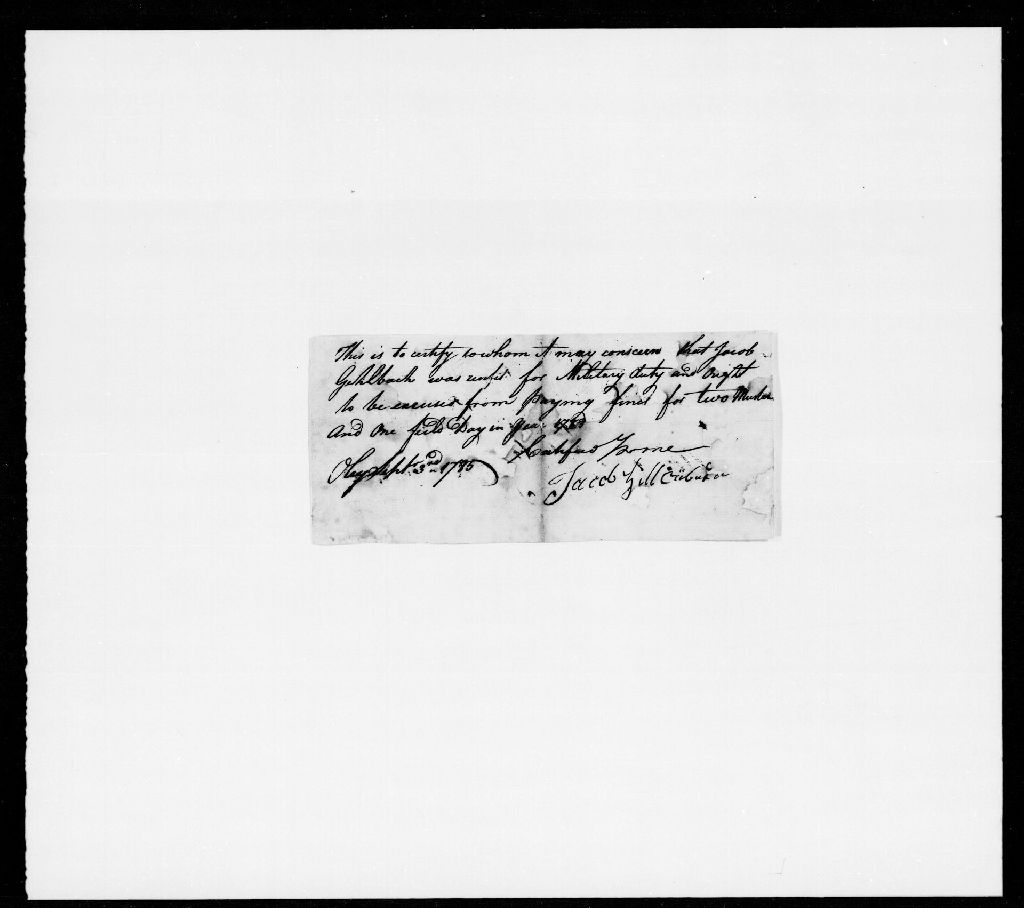 This is to certify to whom it may concern that Jacob
Gehlbach was unfit for Military duty and Ought
to be excused from Paying fines for two Muster
And One field Day in year
Certified by me
Oley Septr. 3rd 1785
Jacob